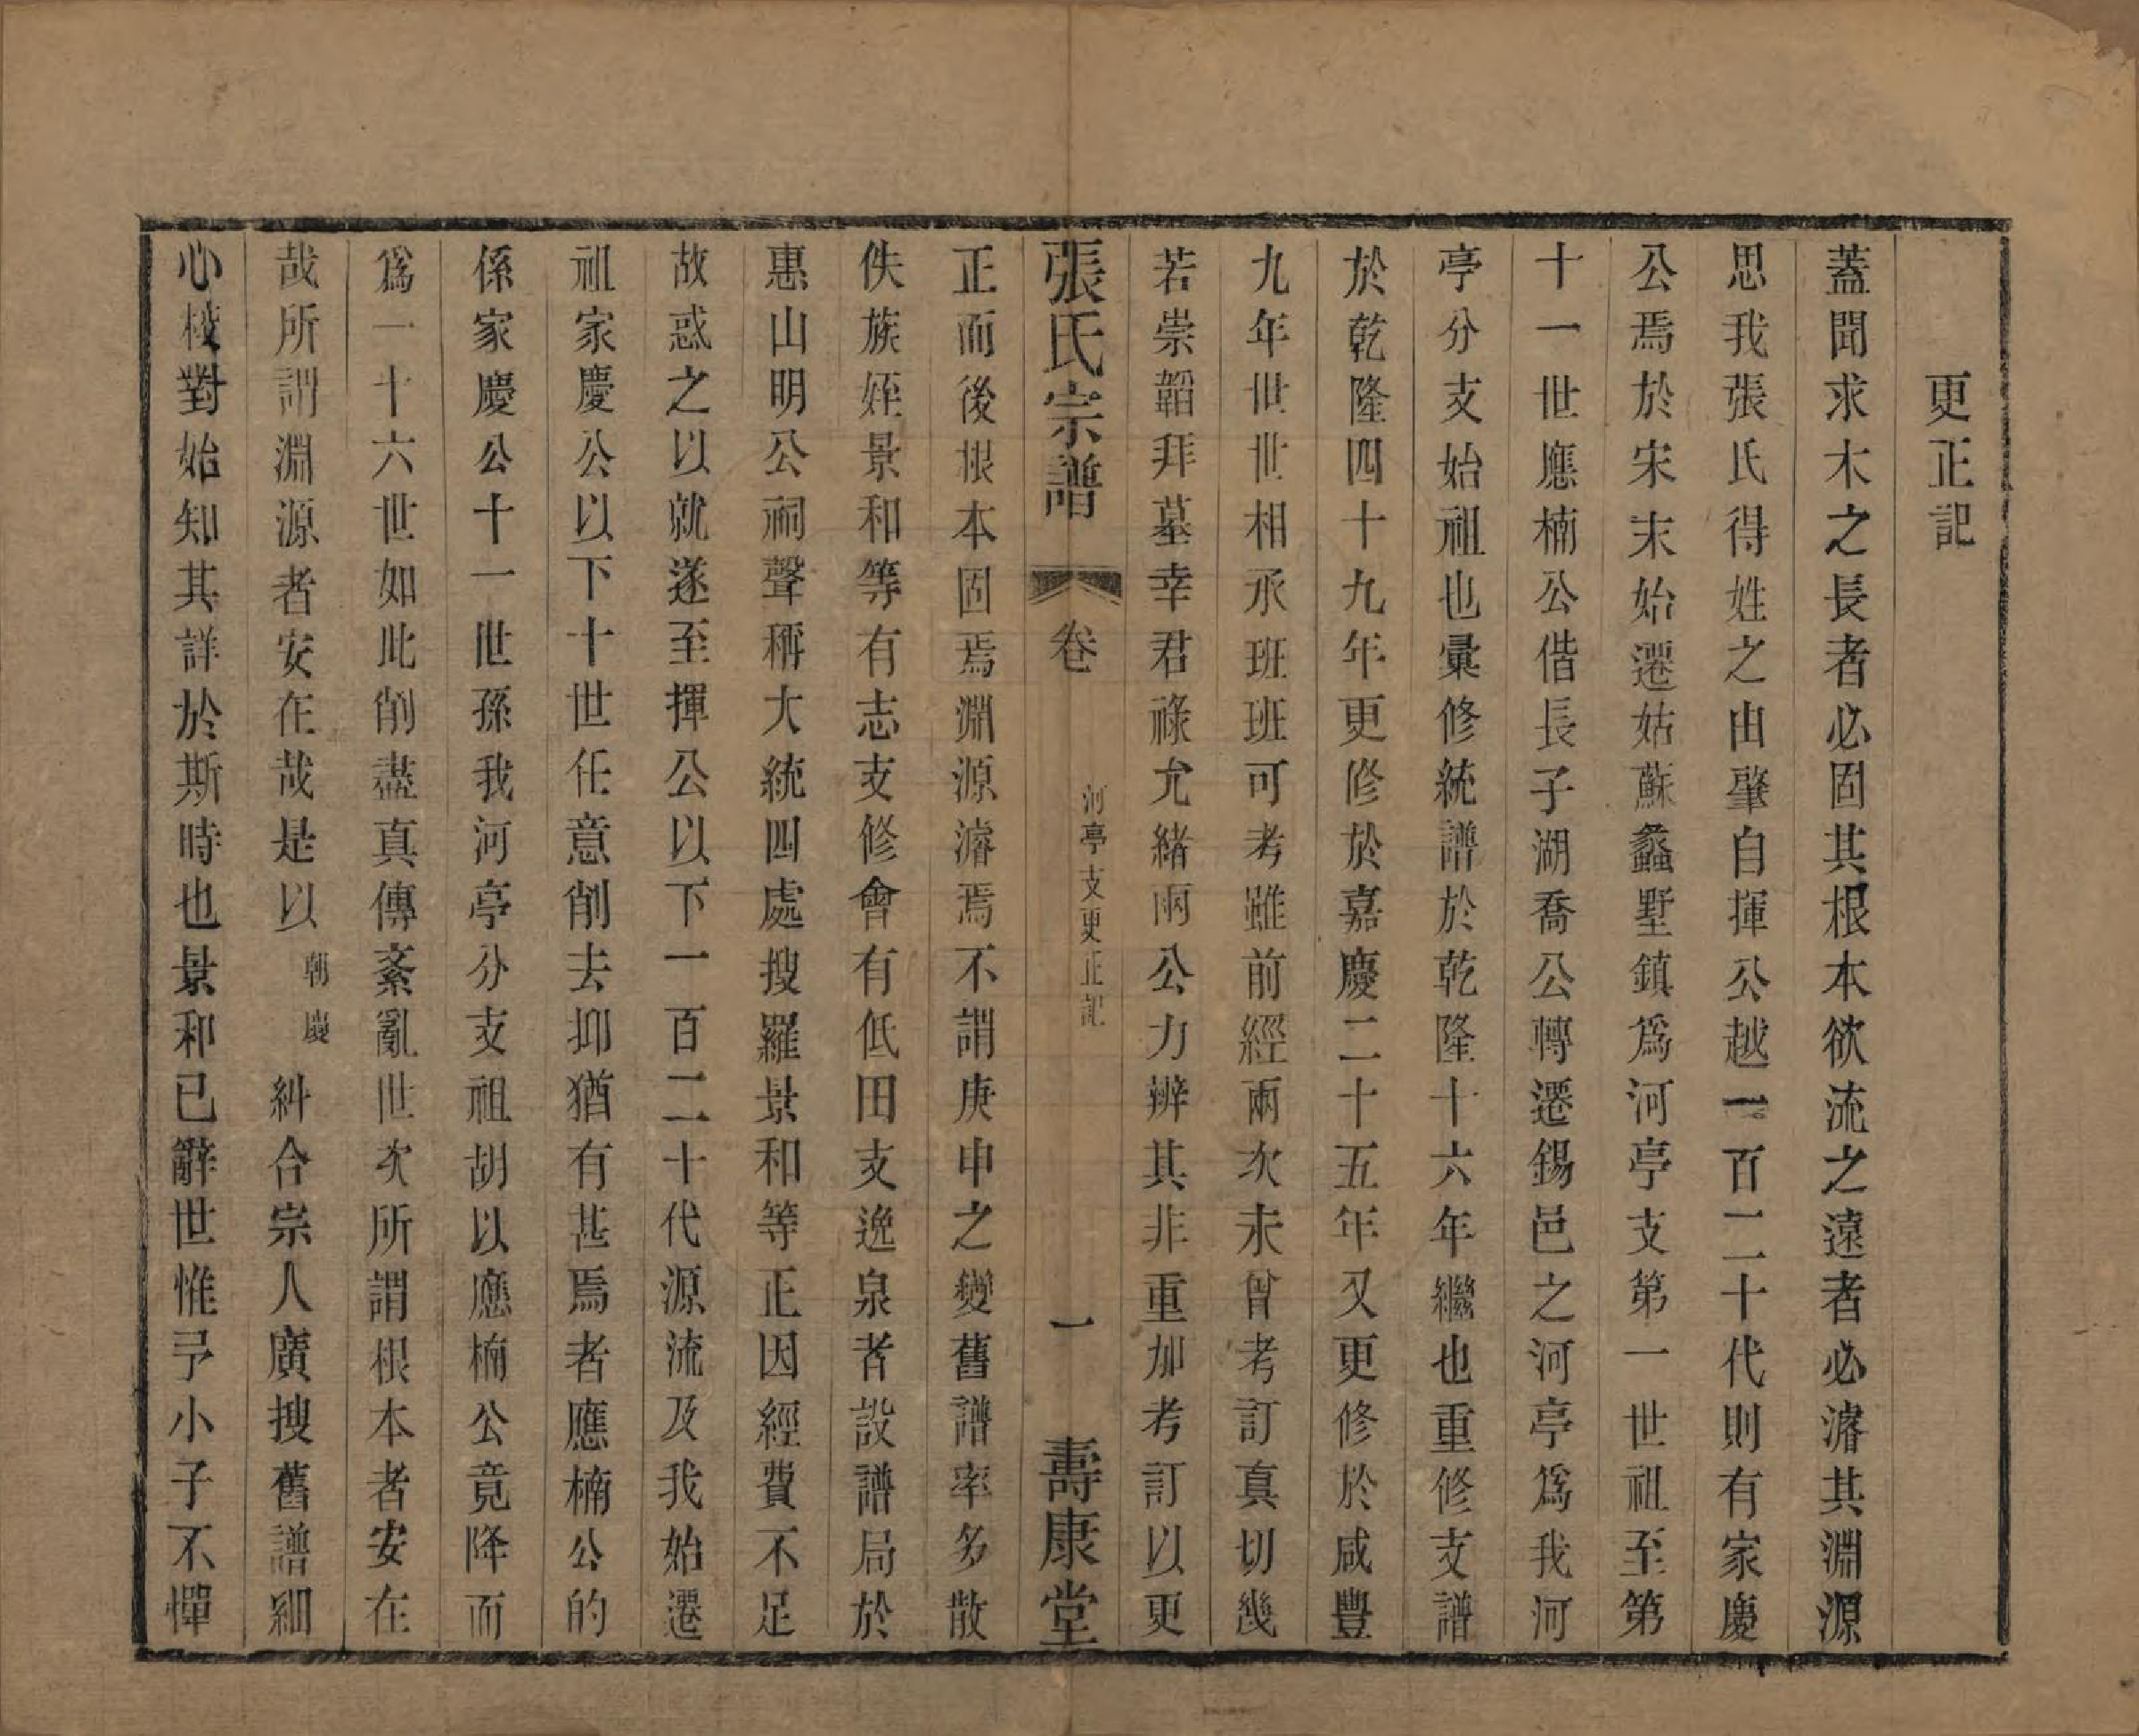 更正記
蓋聞求木之長者必固其根本欲流之遠者必濬其淵源
思我張氏得姓之由肇自揮公越一百二十代則有家慶
公焉於宋末始遷姑蘇蠡墅鎮爲河亭支第一世祖至第
十一世應楠公偕長子湖喬公轉遷錫邑之河亭爲我河
亭分支始祖也彙修統譜於乾隆十六年繼也重修支譜
於乾隆四十九年更修於嘉慶二十五年又更修於咸豐
九年世世相承班班可考雖前經兩次未曾考訂真切幾
若崇韜拜墓幸君祿允緒兩公力辨其非重加考訂以更
張氏宗譜 卷 河亭支更正記 一 壽康堂
正而後根本固焉淵源濬焉不謂庚申之變舊譜率多散
佚族姪景和等有志支修會有低田支逸泉者設譜局於
惠山明公祠聲稱大統四處搜羅景和等正因經費不足
故惑之以就遂至揮公以下一百二十代源流及我始遷
祖家慶公以下十世任意削去抑猶有甚焉者應楠公的
係家慶公十一世孫我河亭分支祖胡以應楠公竟降而
爲一十六世如此削盡真傳紊亂世次所謂根本者安在
哉所謂淵源者安在哉是以朝慶糾合宗人廣搜舊譜細
心校對始知其詳於斯時也景和已辭世惟予小子不憚